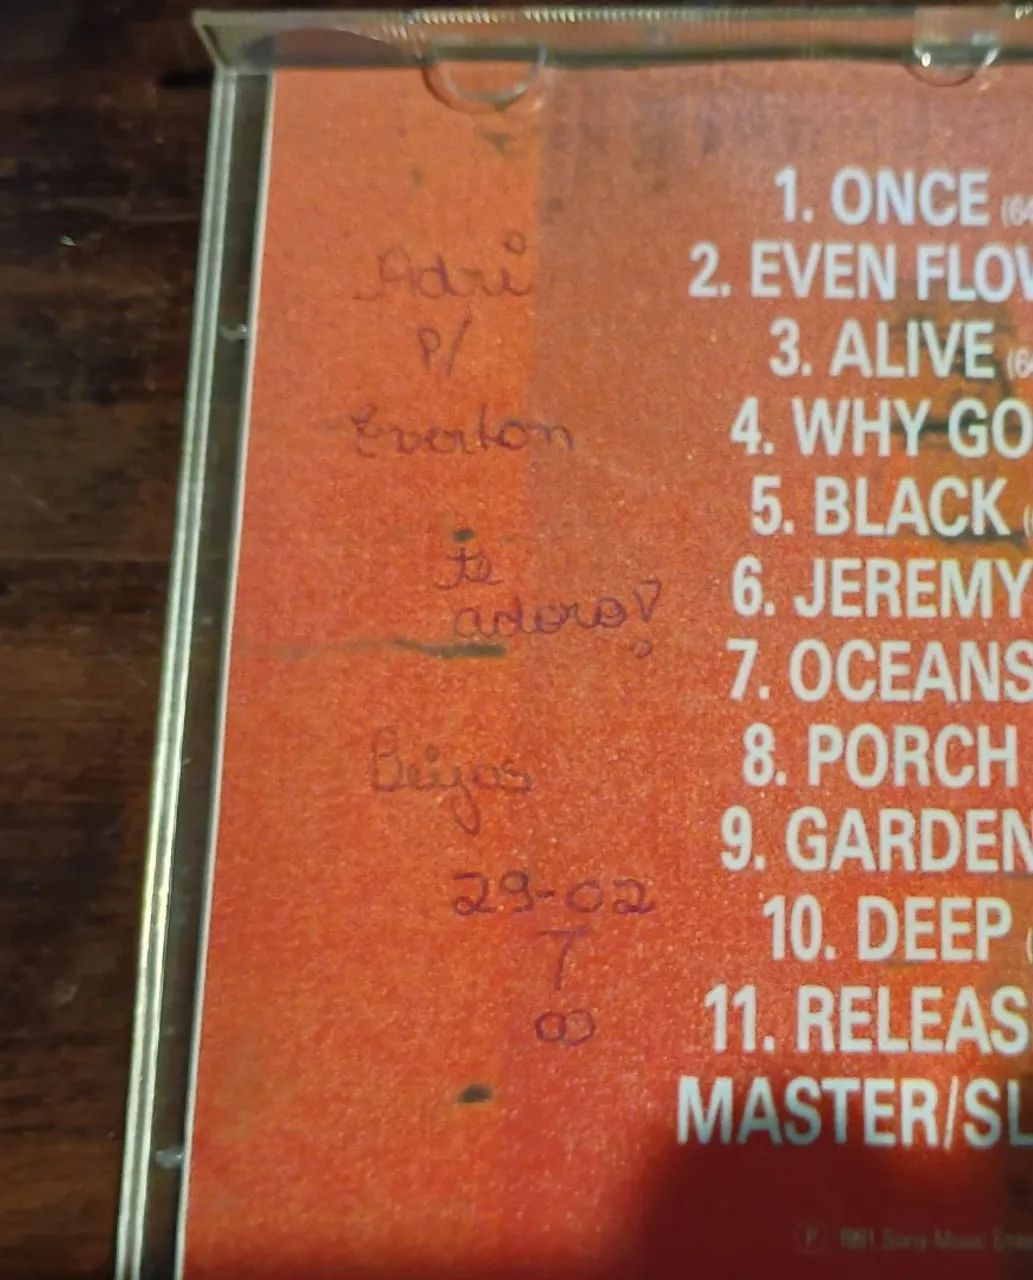 Adri
p/
Everton
te
adoro!
Beijos
29-02
7
∞
1. ONCE
2. EVEN FLOW
3. ALIVE
4. WHY GO
5. BLACK
6. JEREMY
7. OCEANS
8. PORCH
9. GARDEN
10. DEEP
11. RELEAS
MASTER/SL
Ⓟ 1991 Sony Music Ente